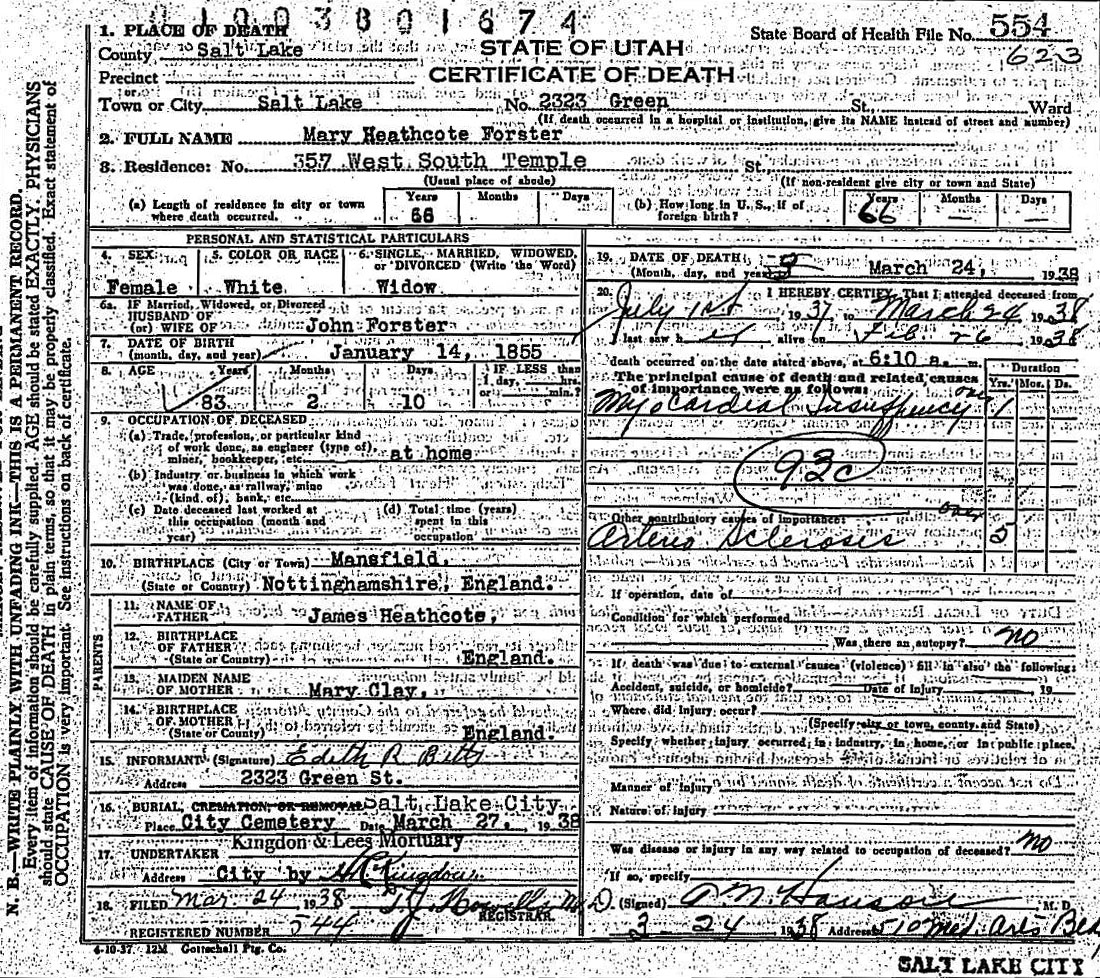 01003801674
1. PLACE OF DEATH
County Salt Lake
Precinct
or
Town or City Salt Lake No. 2323 Green St. Ward
STATE OF UTAH
CERTIFICATE OF DEATH
State Board of Health File No. 554
623
(If death occurred in a hospital or institution, give its NAME instead of street and number)
2. FULL NAME Mary Heathcote Forster
3. Residence: No. 357 West South Temple St.
(Usual place of abode) (If non-resident give city or town and State)
(a) Length of residence in city or town where death occurred. Years 66 Months Days
(b) How long in U. S., if of foreign birth? Years 66 Months — Days —
PERSONAL AND STATISTICAL PARTICULARS
4. SEX Female
5. COLOR OR RACE White
6. SINGLE, MARRIED, WIDOWED, or DIVORCED (Write the Word) Widow
6a. IF Married, Widowed, or Divorced
HUSBAND OF
(or) WIFE OF John Forster
7. DATE OF BIRTH
(month, day, and year) January 14, 1855
8. AGE Years 83 Months 2 Days 10 IF LESS than 1 day, hrs. or min.?
9. OCCUPATION OF DECEASED
(a) Trade, profession, or particular kind of work done, as engineer (type of), miner, bookkeeper, etc. at home
(b) Industry or business in which work was done, as railway, mine (kind of), bank, etc.
(c) Date deceased last worked at this occupation (month and year)
(d) Total time (years) spent in this occupation
10. BIRTHPLACE (City or Town) Mansfield,
(State or Country) Nottinghamshire, England.
PARENTS
11. NAME OF FATHER James Heathcote,
12. BIRTHPLACE OF FATHER
(State or Country) England.
13. MAIDEN NAME OF MOTHER Mary Clay,
14. BIRTHPLACE OF MOTHER
(State or Country) England.
15. INFORMANT (Signature) Edith R Bitts
Address 2323 Green St.
16. BURIAL, CREMATION, OR REMOVAL Salt Lake City
Place City Cemetery Date March 27, 1938
17. UNDERTAKER Kingdon & Lees Mortuary
Address City by Kingdon
18. FILED Mar 24 1938 T. J. Howells M D.
REGISTRAR.
REGISTERED NUMBER 544
4-10-37 12M Gottschall Ptg. Co.
19. DATE OF DEATH
(Month, day, and year) 3 March 24, 1938
20. I HEREBY CERTIFY, That I attended deceased from
July 1st 1937 to March 24 1938
I last saw h er alive on Feb. 26 1938
death occurred on the date stated above, at 6:10 a. m.
The principal cause of death and related causes of importance were as follows:
Duration
Yrs. Mos. Ds.
Myocardial Insuffiency over 1
93c
Other contributory causes of importance:
Arterio Sclerosis over 5
If operation, date of
Condition for which performed
Was there an autopsy? no
If death was due to external causes (violence) fill in also the following:
Accident, suicide, or homicide? Date of injury 19
Where did injury occur?
(Specify city or town, county and State)
Specify whether injury occurred in industry, in home, or in public place.
Manner of injury
Nature of injury
Was disease or injury in any way related to occupation of deceased? no
If so, specify
(Signed) M. D.
3 - 24 1938 Address 510 Med. Arts Bld
SALT LAKE CITY
N. B.—WRITE PLAINLY WITH UNFADING INK—THIS IS A PERMANENT RECORD.
Every item of information should be carefully supplied. AGE should be stated EXACTLY. PHYSICIANS
should state CAUSE OF DEATH in plain terms, so that it may be properly classified. Exact statement of
OCCUPATION is very important. See instructions on back of certificate.